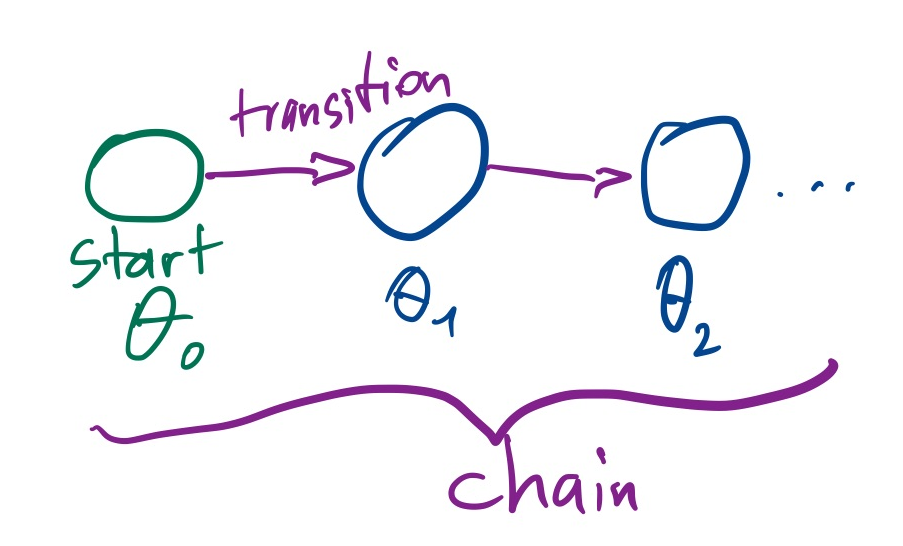 transition
start
θ₀
θ₁
θ₂
...
chain